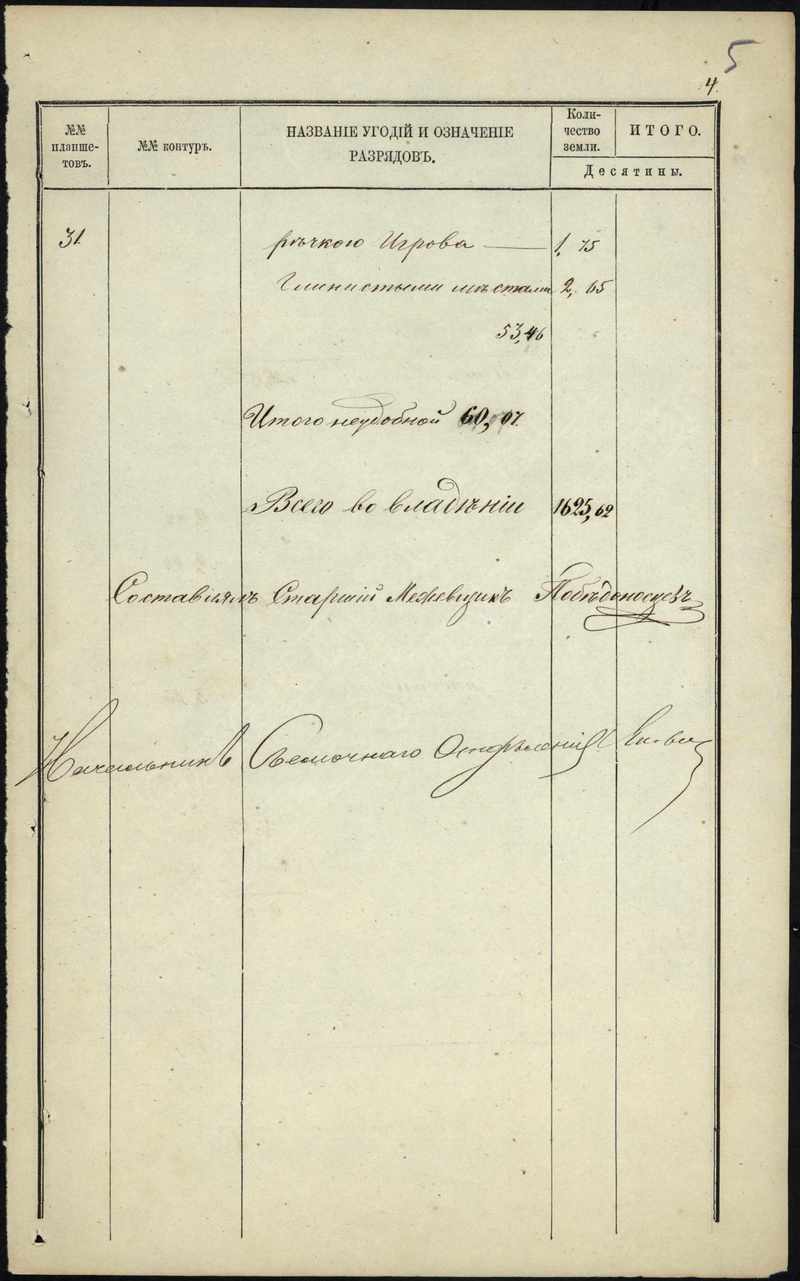 5
4.
№№ планше-товъ.
№№ контуръ.
НАЗВАНІЕ УГОДІЙ И ОЗНАЧЕНІЕ
РАЗРЯДОВЪ.
Коли-
чество
земли.
ИТОГО.
Десятины.
31. рѣчкою Игрова — 1, 75
Глинистыми мѣстами 2, 65
53,46
Итого неудобной 60, 07.
Всего во владѣніи 1625,62
Составлялъ Старшій Межевщикъ Побѣдоносцевъ
Начальникъ Съемочнаго Отдѣленія